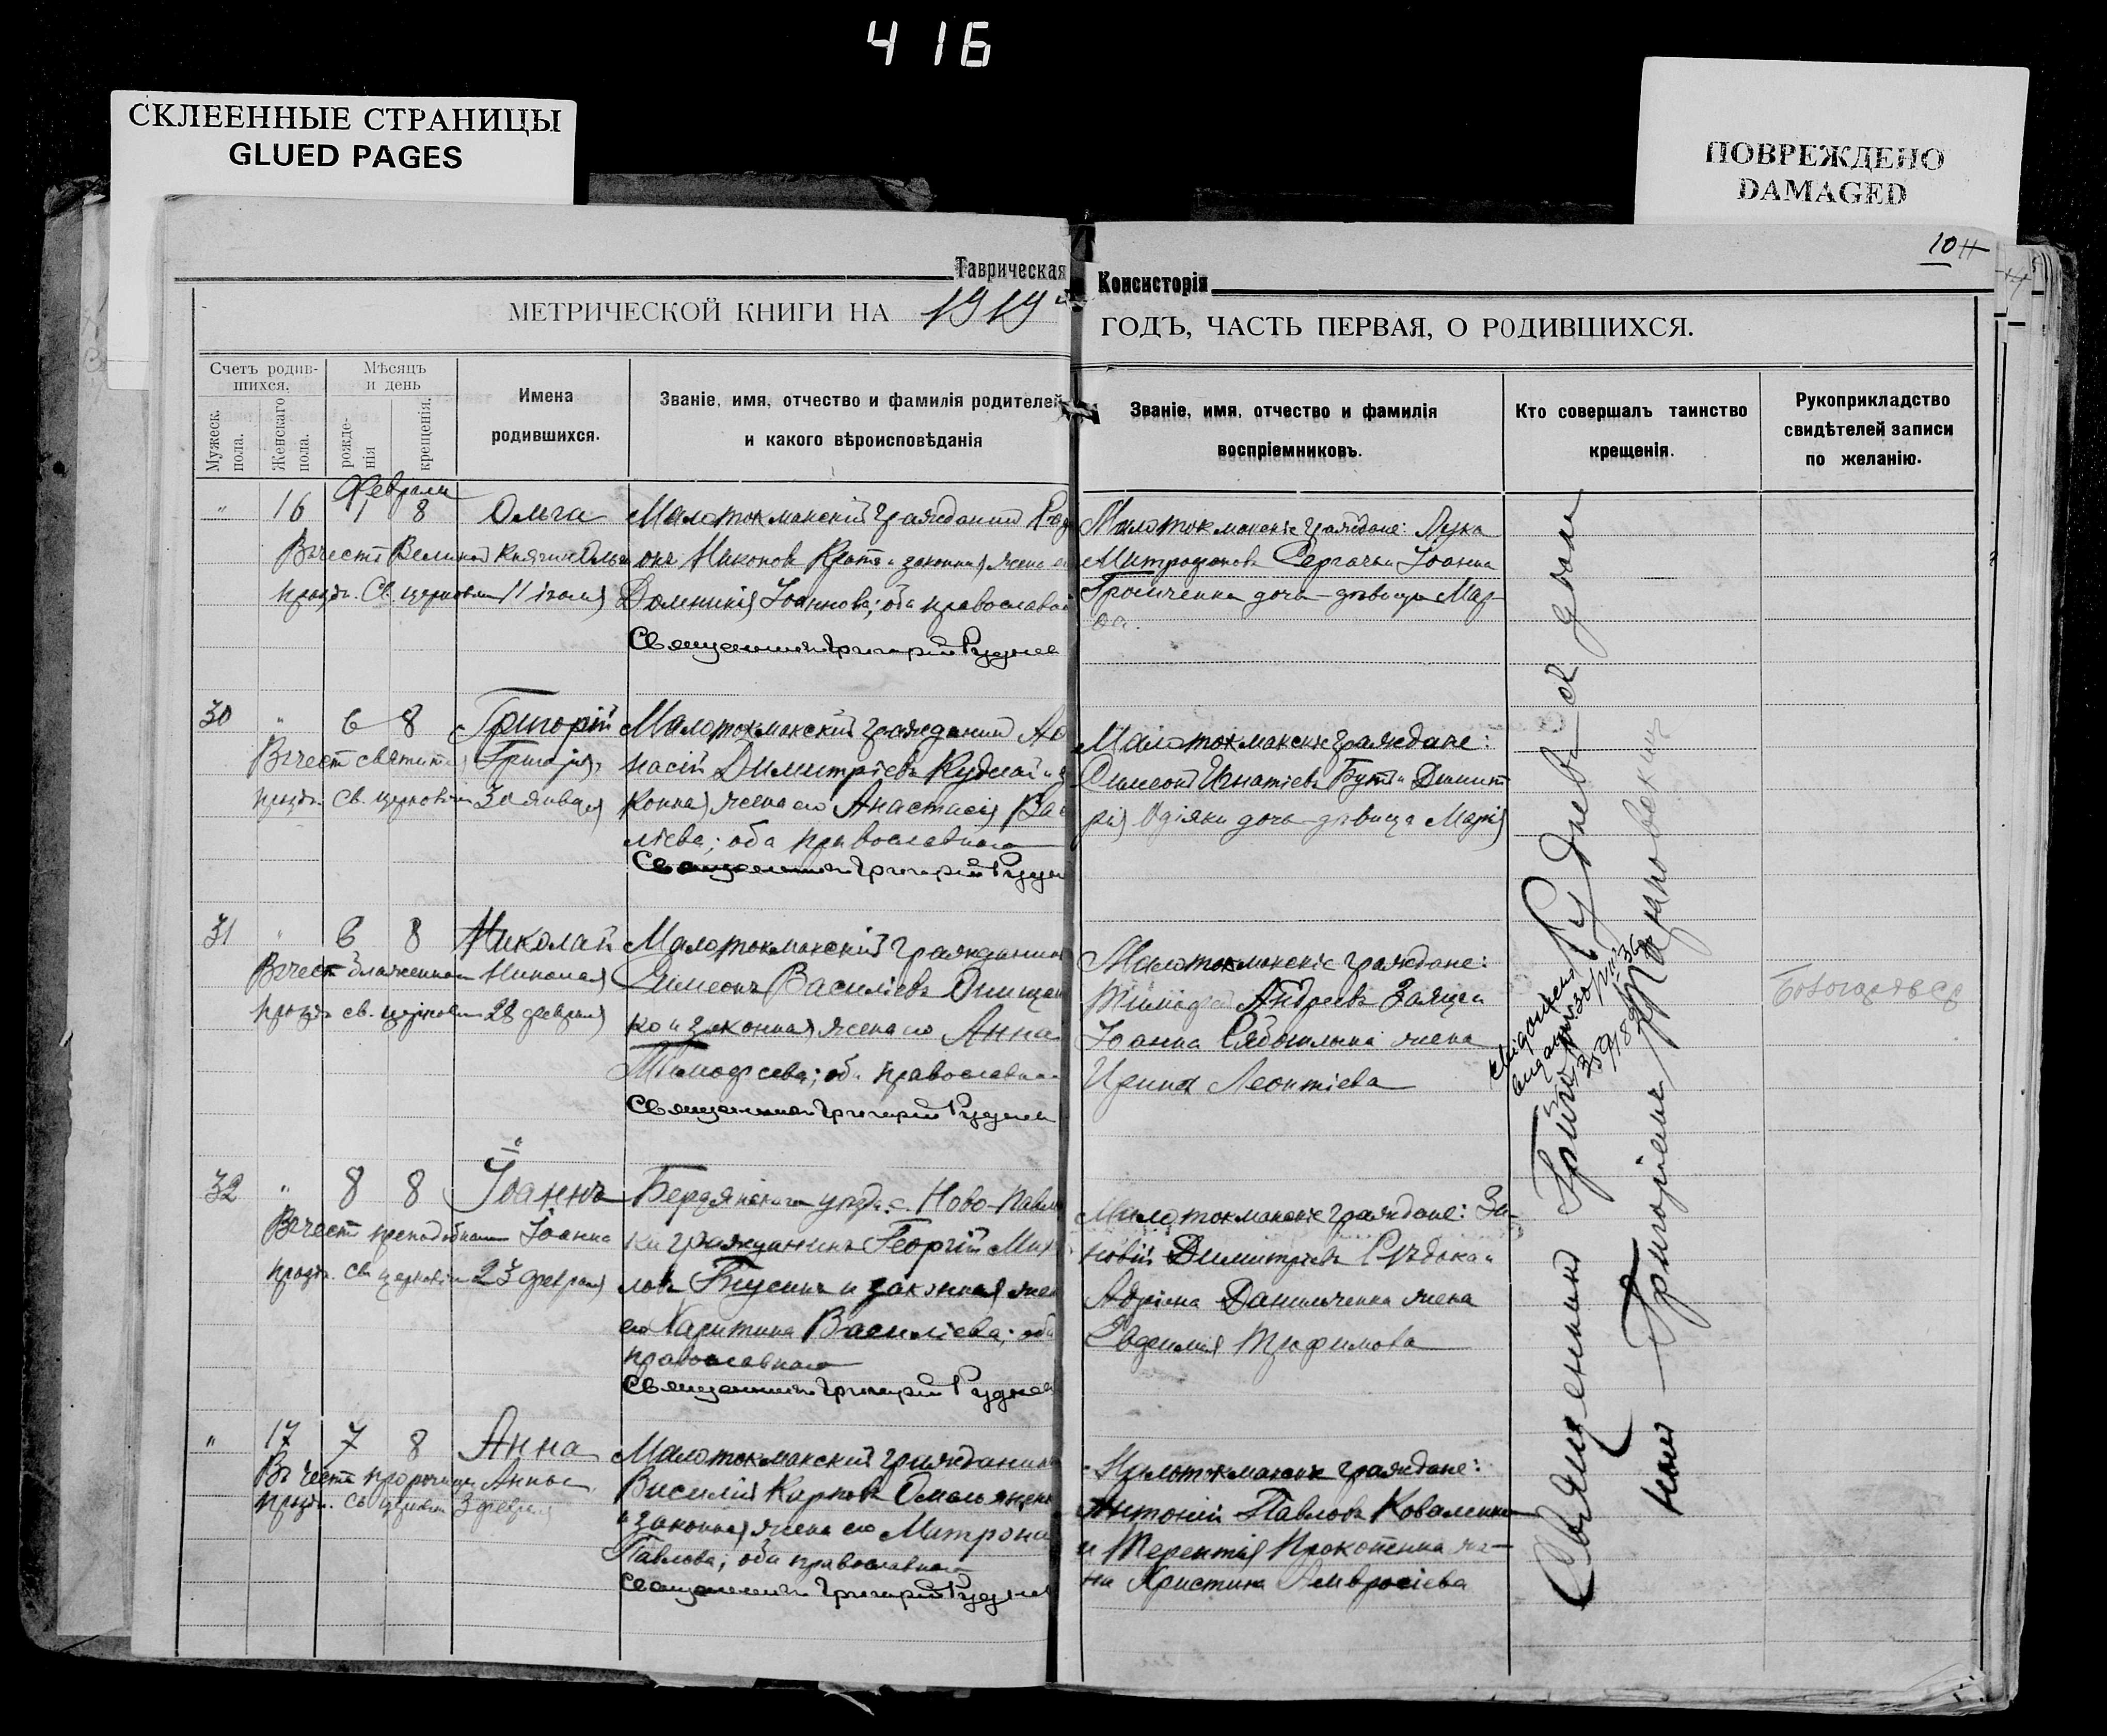 416
СКЛЕЕННЫЕ СТРАНИЦЫ
GLUED PAGES
ПОВРЕЖДЕНО
DAMAGED
Таврическая
Консисторія
МЕТРИЧЕСКОЙ КНИГИ НА 1919й
ГОДЪ, ЧАСТЬ ПЕРВАЯ, О РОДИВШИХСЯ.
Счетъ родив-
шихся.
Мужеск.
пола.
Женскаго
пола.
Мѣсяцъ
и день
рожде-
нія
крещенія.
Имена
родившихся.
Званіе, имя, отчество и фамилія родителей
и какого вѣроисповѣданія
Званіе, имя, отчество и фамилія
воспріемниковъ.
Кто совершалъ таинство
крещенія.
Рукоприкладство
свидѣтелей записи
по желанію.
Февраля
" 16 1 8 Ольга
Въ честь Великой Княгини Ольги
празд. Св. церковью 11 іюля
Малотокмакскій гражданинъ
онъ Никоновъ и законная жена
Домникія Іоаннова; оба православнаго
Священникъ Григорій Руднев
Малотокмакскіе граждане: Лука
Митрофановъ Сергачъ и Іоанна
Громченка дочь-дѣвица Мар-
ѳа.
30 " 6 8 Григорій
Въ честь святит. Григорія,
празд. св. церковью 30 января
Малотокмакскій гражданинъ
насій Димитріевъ и
конная жена его Анастасія Ва
ліева; оба православнаго
Священникъ Григорій Рудн
Малотокмакскіе граждане:
Симеонъ Игнатіевъ Бутъ и Димит
рія дочь-дѣвица Марія
31 " 6 8 Николай
Въ честь блаженнаго Николая
празд. св. церковью 28 февраля
Малотокмакскій гражданинъ
Симеонъ Василіевъ Онищен
ко и законная жена его Анна
Тимофеева; оба православна
Священникъ Григорій Руднев
Малотокмакскіе граждане:
Тимофей Андреевъ Заяцъ и
Іоанна жена
Ирина Леонтіева
32 " 8 8 Іоаннъ
Въ честь преподобнаго Іоанна
празд. св. церковью 23 февраля
Бердянскаго уѣзда с. Ново-Павлов
ки гражданинъ Георгій Миха
ловъ и законная жена
его Харитина Василіева; оба
православнаго
Священникъ Григорій Руднев
Малотокмакскіе граждане: Зи-
новій Димитріевъ Рѣдька и
Адріана Данильченка жена
Евфимія Трофимова
" 17 7 8 Анна
Въ честь пророчицы Анны
празд. св. церковью 3 февраля
Малотокмакскій гражданинъ
Василій Карповъ Омельяненко
и законная жена его Матрона
Павлова; оба православнаго
Священникъ Григорій Руднев
Малотокмакскіе граждане:
Антоній Павловъ Коваленко
и Терентія Прокопенка же-
на Христина Амвросіева
Священникъ Григорій Рудневъ
Григоріемъ